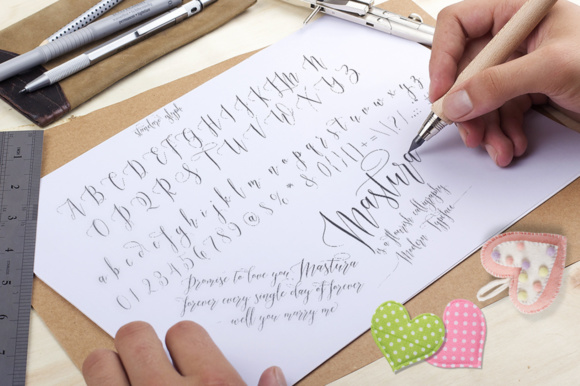 standard glyph
A B C D E F G H I J K L M N
O P Q R S T U V W X Y Z
a b c d e f g h i j k l m n o p q r s t u v w x y z
0 1 2 3 4 5 6 7 8 9 @ $ %
Mastura
is a Flourish calligraphy
Modern Typeface
Promise to love you Mastura
forever every single day of forever
well you marry me
1
2
3
4
5
6
7